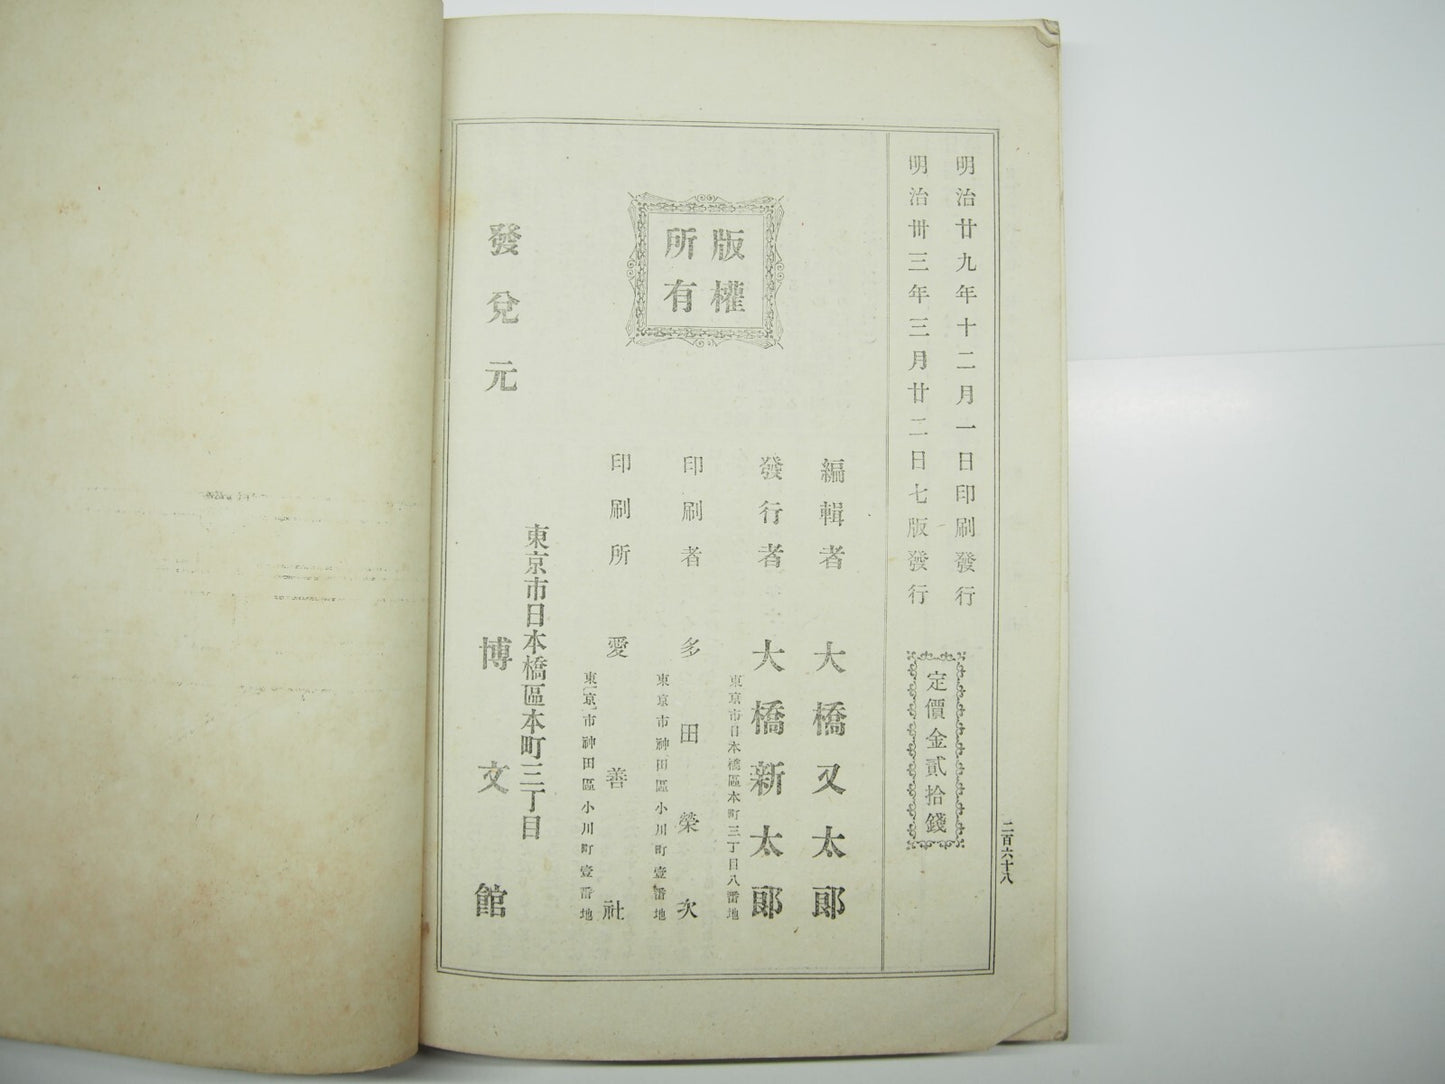 二百六十八
明治廿九年十二月一日印刷發行
明治卅三年三月廿二日七版發行
定價金貳拾錢
版權
所有
編輯者 大橋又太郎
發行者 大橋新太郎
東京市日本橋區本町三丁目八番地
印刷者 多田榮次
東京市神田區小川町壹番地
印刷所 愛善社
東京市神田區小川町壹番地
東京市日本橋區本町三丁目
發兌元 博文館